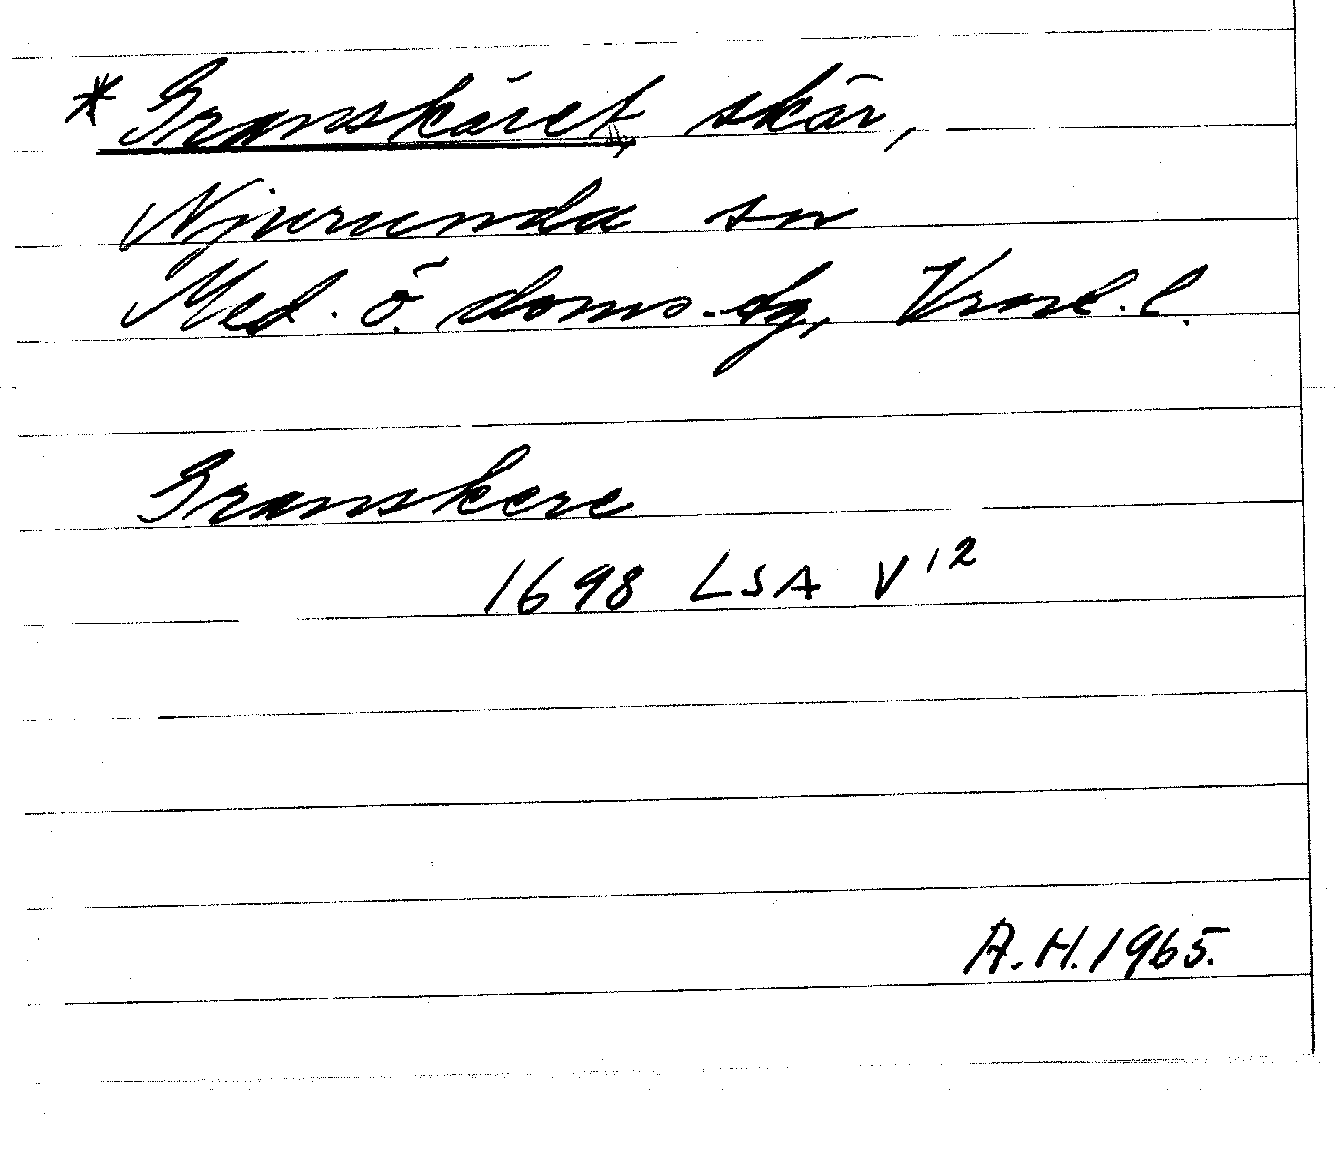 * Granskäret, skär,
Njurunda sn
Med. ö. doms.-dg, Vrnl. l.
Granskere
1698 LSA V 12
A.H. 1965.